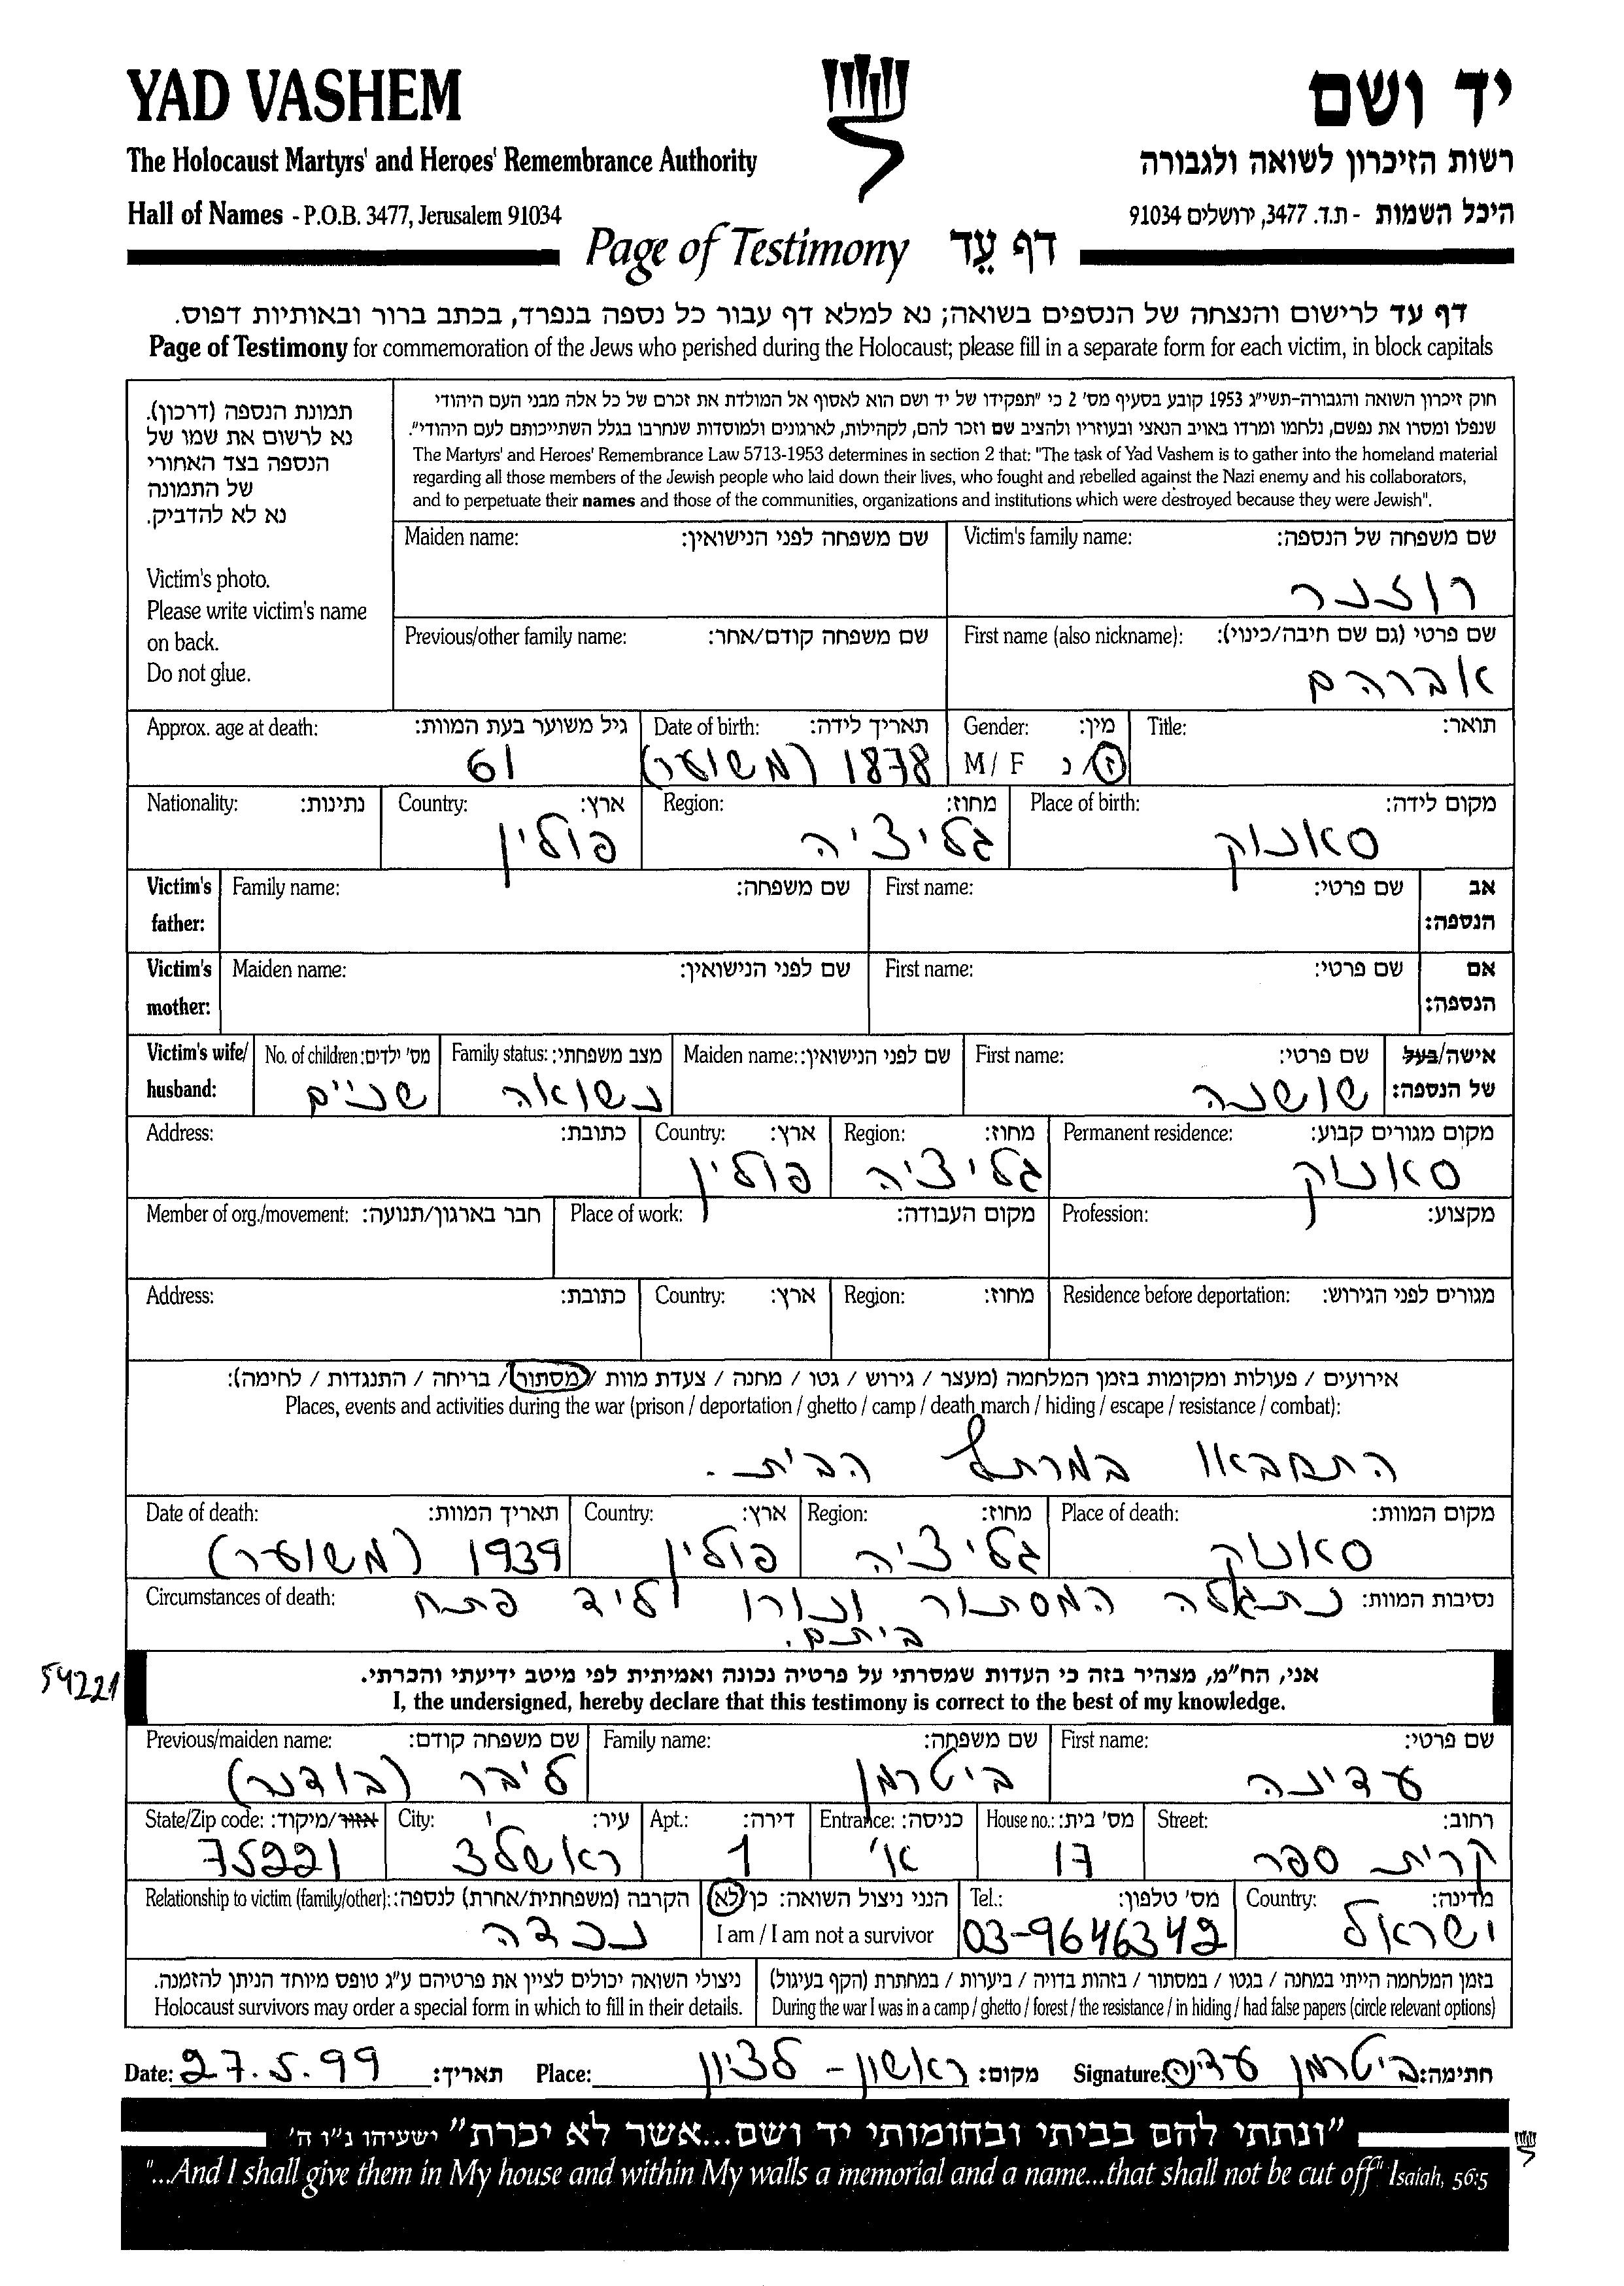 YAD VASHEM
יד ושם
The Holocaust Martyrs' and Heroes' Remembrance Authority
רשות הזיכרון לשואה ולגבורה
Hall of Names - P.O.B. 3477, Jerusalem 91034
היכל השמות - ת.ד. 3477, ירושלים 91034
Page of Testimony דף עֵד
דף עד לרישום והנצחה של הנספים בשואה; נא למלא דף עבור כל נספה בנפרד, בכתב ברור ובאותיות דפוס.
Page of Testimony for commemoration of the Jews who perished during the Holocaust; please fill in a separate form for each victim, in block capitals
תמונת הנספה (דרכון).
נא לרשום את שמו של
הנספה בצד האחורי
של התמונה
נא לא להדביק.
Victim's photo.
Please write victim's name
on back.
Do not glue.
חוק זיכרון השואה והגבורה-תשי"ג 1953 קובע בסעיף מס' 2 כי "תפקידו של יד ושם הוא לאסוף אל המולדת את זכרם של כל אלה מבני העם היהודי
שנפלו ומסרו את נפשם, נלחמו ומרדו באויב הנאצי ובעוזריו ולהציב שם וזכר להם, לקהילות, לארגונים ולמוסדות שנחרבו בגלל השתייכותם לעם היהודי".
The Martyrs' and Heroes' Remembrance Law 5713-1953 determines in section 2 that: "The task of Yad Vashem is to gather into the homeland material
regarding all those members of the Jewish people who laid down their lives, who fought and rebelled against the Nazi enemy and his collaborators,
and to perpetuate their names and those of the communities, organizations and institutions which were destroyed because they were Jewish".
Victim's family name: שם משפחה של הנספה:
רוזנר
Maiden name: שם משפחה לפני הנישואין:
First name (also nickname): שם פרטי (גם שם חיבה/כינוי):
אברהם
Previous/other family name: שם משפחה קודם/אחר:
Title: תואר:
Gender: מין:
M / F ז/נ
Date of birth: תאריך לידה:
1878 (משוער)
Approx. age at death: גיל משוער בעת המוות:
61
Place of birth: מקום לידה:
סאנוק
Region: מחוז:
גליציה
Country: ארץ:
פולין
Nationality: נתינות:
Victim's father: אב הנספה:
First name: שם פרטי:
Family name: שם משפחה:
Victim's mother: אם הנספה:
First name: שם פרטי:
Maiden name: שם לפני הנישואין:
Victim's wife/ husband: אישה/בעל של הנספה:
First name: שם פרטי:
שושנה
Maiden name: שם לפני הנישואין:
Family status: מצב משפחתי:
נשואה
No. of children: מס' ילדים:
שניים
Permanent residence: מקום מגורים קבוע:
סאנוק
Region: מחוז:
גליציה
Country: ארץ:
פולין
Address: כתובת:
Profession: מקצוע:
Place of work: מקום העבודה:
Member of org./movement: חבר בארגון/תנועה:
Residence before deportation: מגורים לפני הגירוש:
Region: מחוז:
Country: ארץ:
Address: כתובת:
אירועים / פעולות ומקומות בזמן המלחמה (מעצר / גירוש / גטו / מחנה / צעדת מוות / מסתור / בריחה / התנגדות / לחימה):
Places, events and activities during the war (prison / deportation / ghetto / camp / death march / hiding / escape / resistance / combat):
התחבאו במרתף הבית.
Place of death: מקום המוות:
סאנוק
Region: מחוז:
גליציה
Country: ארץ:
פולין
Date of death: תאריך המוות:
1939 (משוער)
Circumstances of death: נסיבות המוות:
נתגלה המסתור ונורו ליד פתח
ביתם.
54221
אני, הח"מ, מצהיר בזה כי העדות שמסרתי על פרטיה נכונה ואמיתית לפי מיטב ידיעתי והכרתי.
I, the undersigned, hereby declare that this testimony is correct to the best of my knowledge.
First name: שם פרטי:
עדינה
Family name: שם משפחה:
ביטרמן
Previous/maiden name: שם משפחה קודם:
ליבר (בודנר)
Street: רחוב:
קרית ספר
House no.: מס' בית:
17
Entrance: כניסה:
א'
Apt.: דירה:
1
City: עיר:
ראשלצ
State/Zip code: אזור/מיקוד:
75221
Country: מדינה:
ישראל
Tel.: מס' טלפון:
03-9646342
הנני ניצול השואה: כן/לא
I am / I am not a survivor
Relationship to victim (family/other): הקרבה (משפחתית/אחרת) לנספה:
נכדה
בזמן המלחמה הייתי במחנה / בגטו / במסתור / בזהות בדויה / ביערות / במחתרת (הקף בעיגול)
During the war I was in a camp / ghetto / forest / the resistance / in hiding / had false papers (circle relevant options)
ניצולי השואה יכולים לציין את פרטיהם ע"ג טופס מיוחד הניתן להזמנה.
Holocaust survivors may order a special form in which to fill in their details.
Date: 27.5.99 תאריך: Place: ראשון - לציון מקום: Signature: ביטרמן עדינה חתימה:
"ונתתי להם בביתי ובחומותי יד ושם...אשר לא יכרת" ישעיהו נ"ו ה'
"...And I shall give them in My house and within My walls a memorial and a name...that shall not be cut off" Isaiah, 56:5